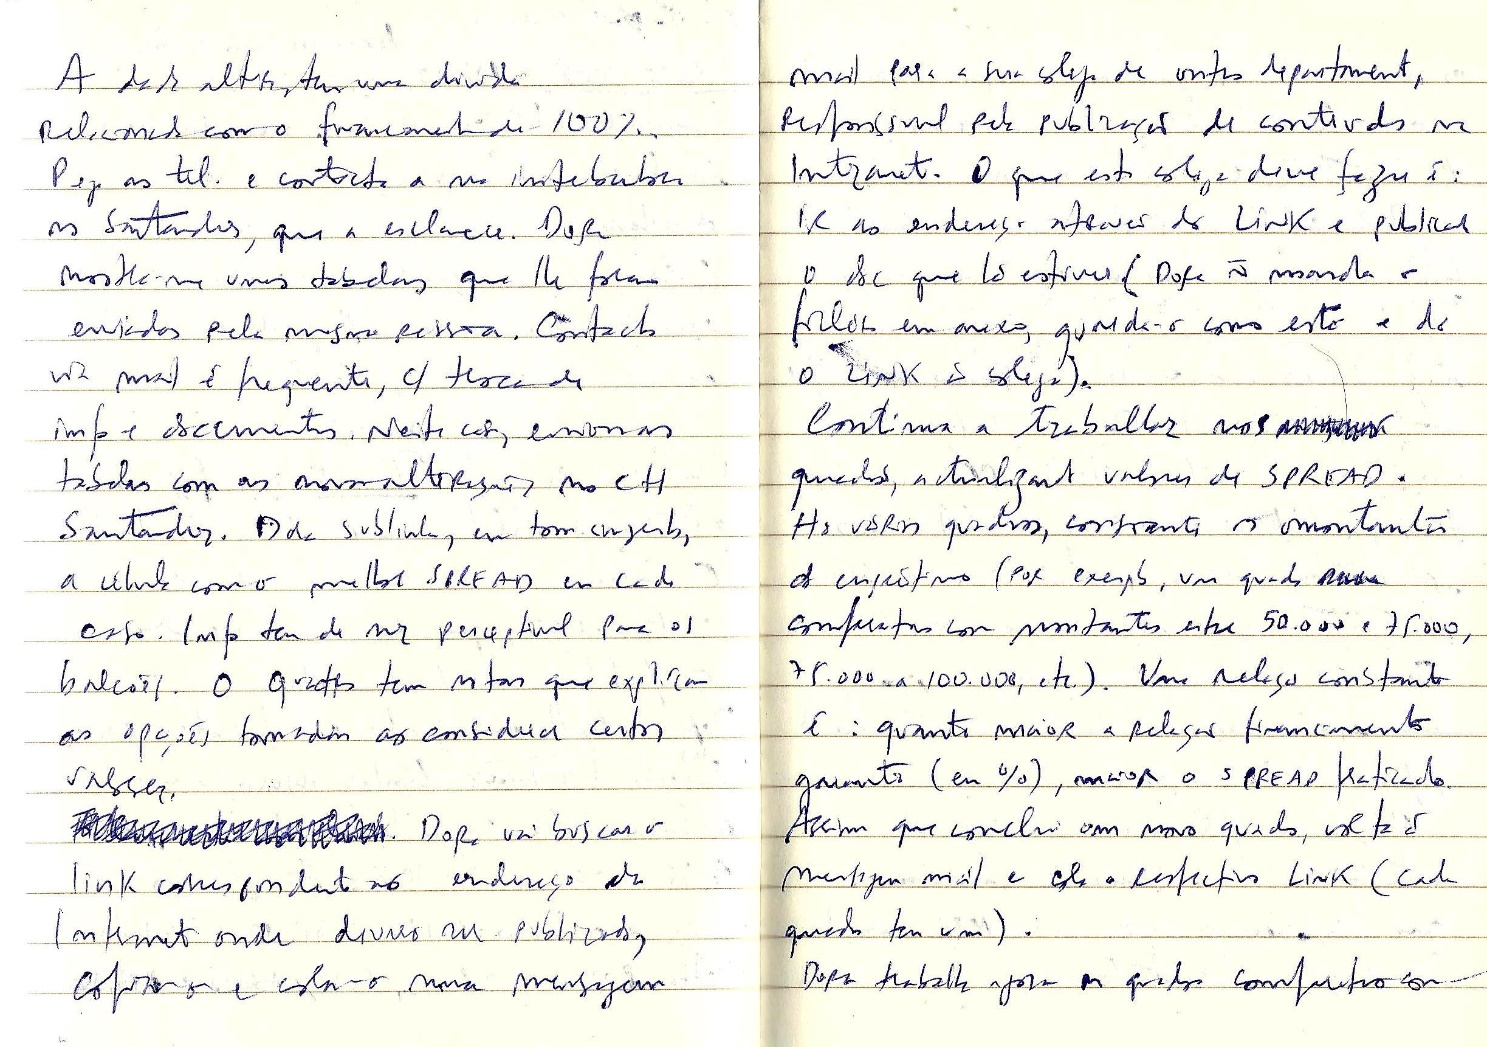 A dada altura, tem uma dúvida
relacionada com o financiamento de 100%.
Pega no tel. e contacta a
no Santander, que a esclarece. Dora
mostra-me umas tabelas que lhe foram
enviadas pela mesma pessoa. Contacto
via mail é frequente, c/ troca de
inf e documentos. Neste caso, enviou as
tabelas com as novas alterações no CH
Santander. Dora sublinha, em tom cinzento,
a célula com o melhor SPREAD em cada
caso. Inf tem de ser perceptível para os
balcões. O quadro tem notas que explicam
as opções tomadas ao considerar certos
valores.
Dora vai buscar o
link correspondente ao endereço da
Internet onde deverá ser publicado,
copia-o e cola-o numa mensagem
mail para a sua colega de outro departamento,
responsável pela publicação de conteúdos na
Intranet. O que esta colega deve fazer é:
ir ao endereço através do LINK e publicar
o doc que lá estiver (Dora ñ manda o
em anexo, guarda-o como está e dá
o LINK à colega).
Continua a trabalhar nos
quadros, actualizando valores de SPREAD.
Há vários quadros, consoante os montantes
de empréstimo (por exemplo, um quadro
comparativo com montantes entre 50.000 e 75.000,
75.000 a 100.000, etc.). Uma relação constante
é: quanto maior a relação financiamento
garantia (em %), maior o SPREAD praticado.
Assim que conclui um novo quadro, volta à
mensagem mail e cola o respectivo LINK (cada
quadro tem um).
Dora trabalha agora no quadro comparativo com